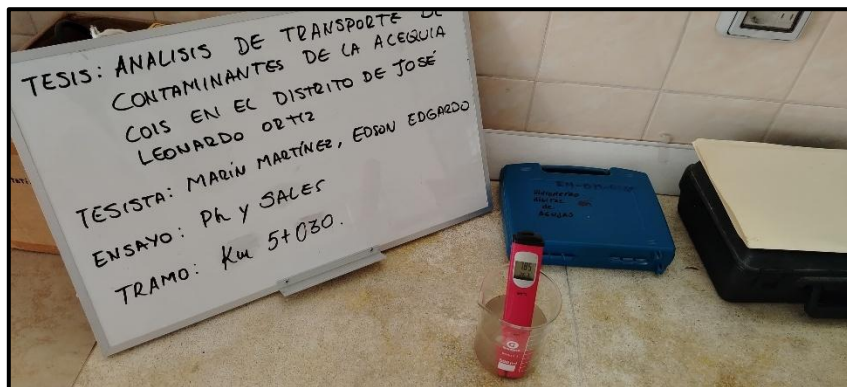 TESIS: ANALISIS DE TRANSPORTE DE
CONTAMINANTES DE LA ACEQUIA
COIS EN EL DISTRITO DE JOSÉ
LEONARDO ORTIZ
TESISTA: MARÍN MARTÍNEZ, EDSON EDGARDO
ENSAYO: Ph y SALES
TRAMO: Km 5+030.